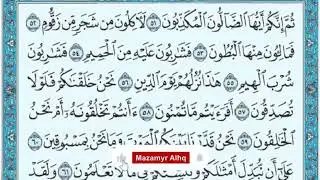 ثُمَّ إِنَّكُمْ أَيُّهَا ٱلضَّآلُّونَ ٱلْمُكَذِّبُونَ ٥١ لَأَكِلُونَ مِن شَجَرٍ مِّن زَقُّومٍ ٥٢
فَمَالِـُٔونَ مِنْهَا ٱلْبُطُونَ ٥٣ فَشَٰرِبُونَ عَلَيْهِ مِنَ ٱلْحَمِيمِ ٥٤ فَشَٰرِبُونَ
شُرْبَ ٱلْهِيمِ ٥٥ هَٰذَا نُزُلُهُمْ يَوْمَ ٱلدِّينِ ٥٦ نَحْنُ خَلَقْنَٰكُمْ فَلَوْلَا
تُصَدِّقُونَ ٥٧ أَفَرَءَيْتُم مَّا تُمْنُونَ ٥٨ ءَأَنتُمْ تَخْلُقُونَهُۥٓ أَمْ نَحْنُ
ٱلْخَٰلِقُونَ ٥٩ نَحْنُ قَدَّرْنَا بَيْنَكُمُ ٱلْمَوْتَ وَمَا نَحْنُ بِمَسْبُوقِينَ ٦٠
عَلَىٰٓ أَن نُّبَدِّلَ أَمْثَٰلَكُمْ وَنُنشِئَكُمْ فِى مَا لَا تَعْلَمُونَ ٦١ وَلَقَدْ
Mazamyr Alhq